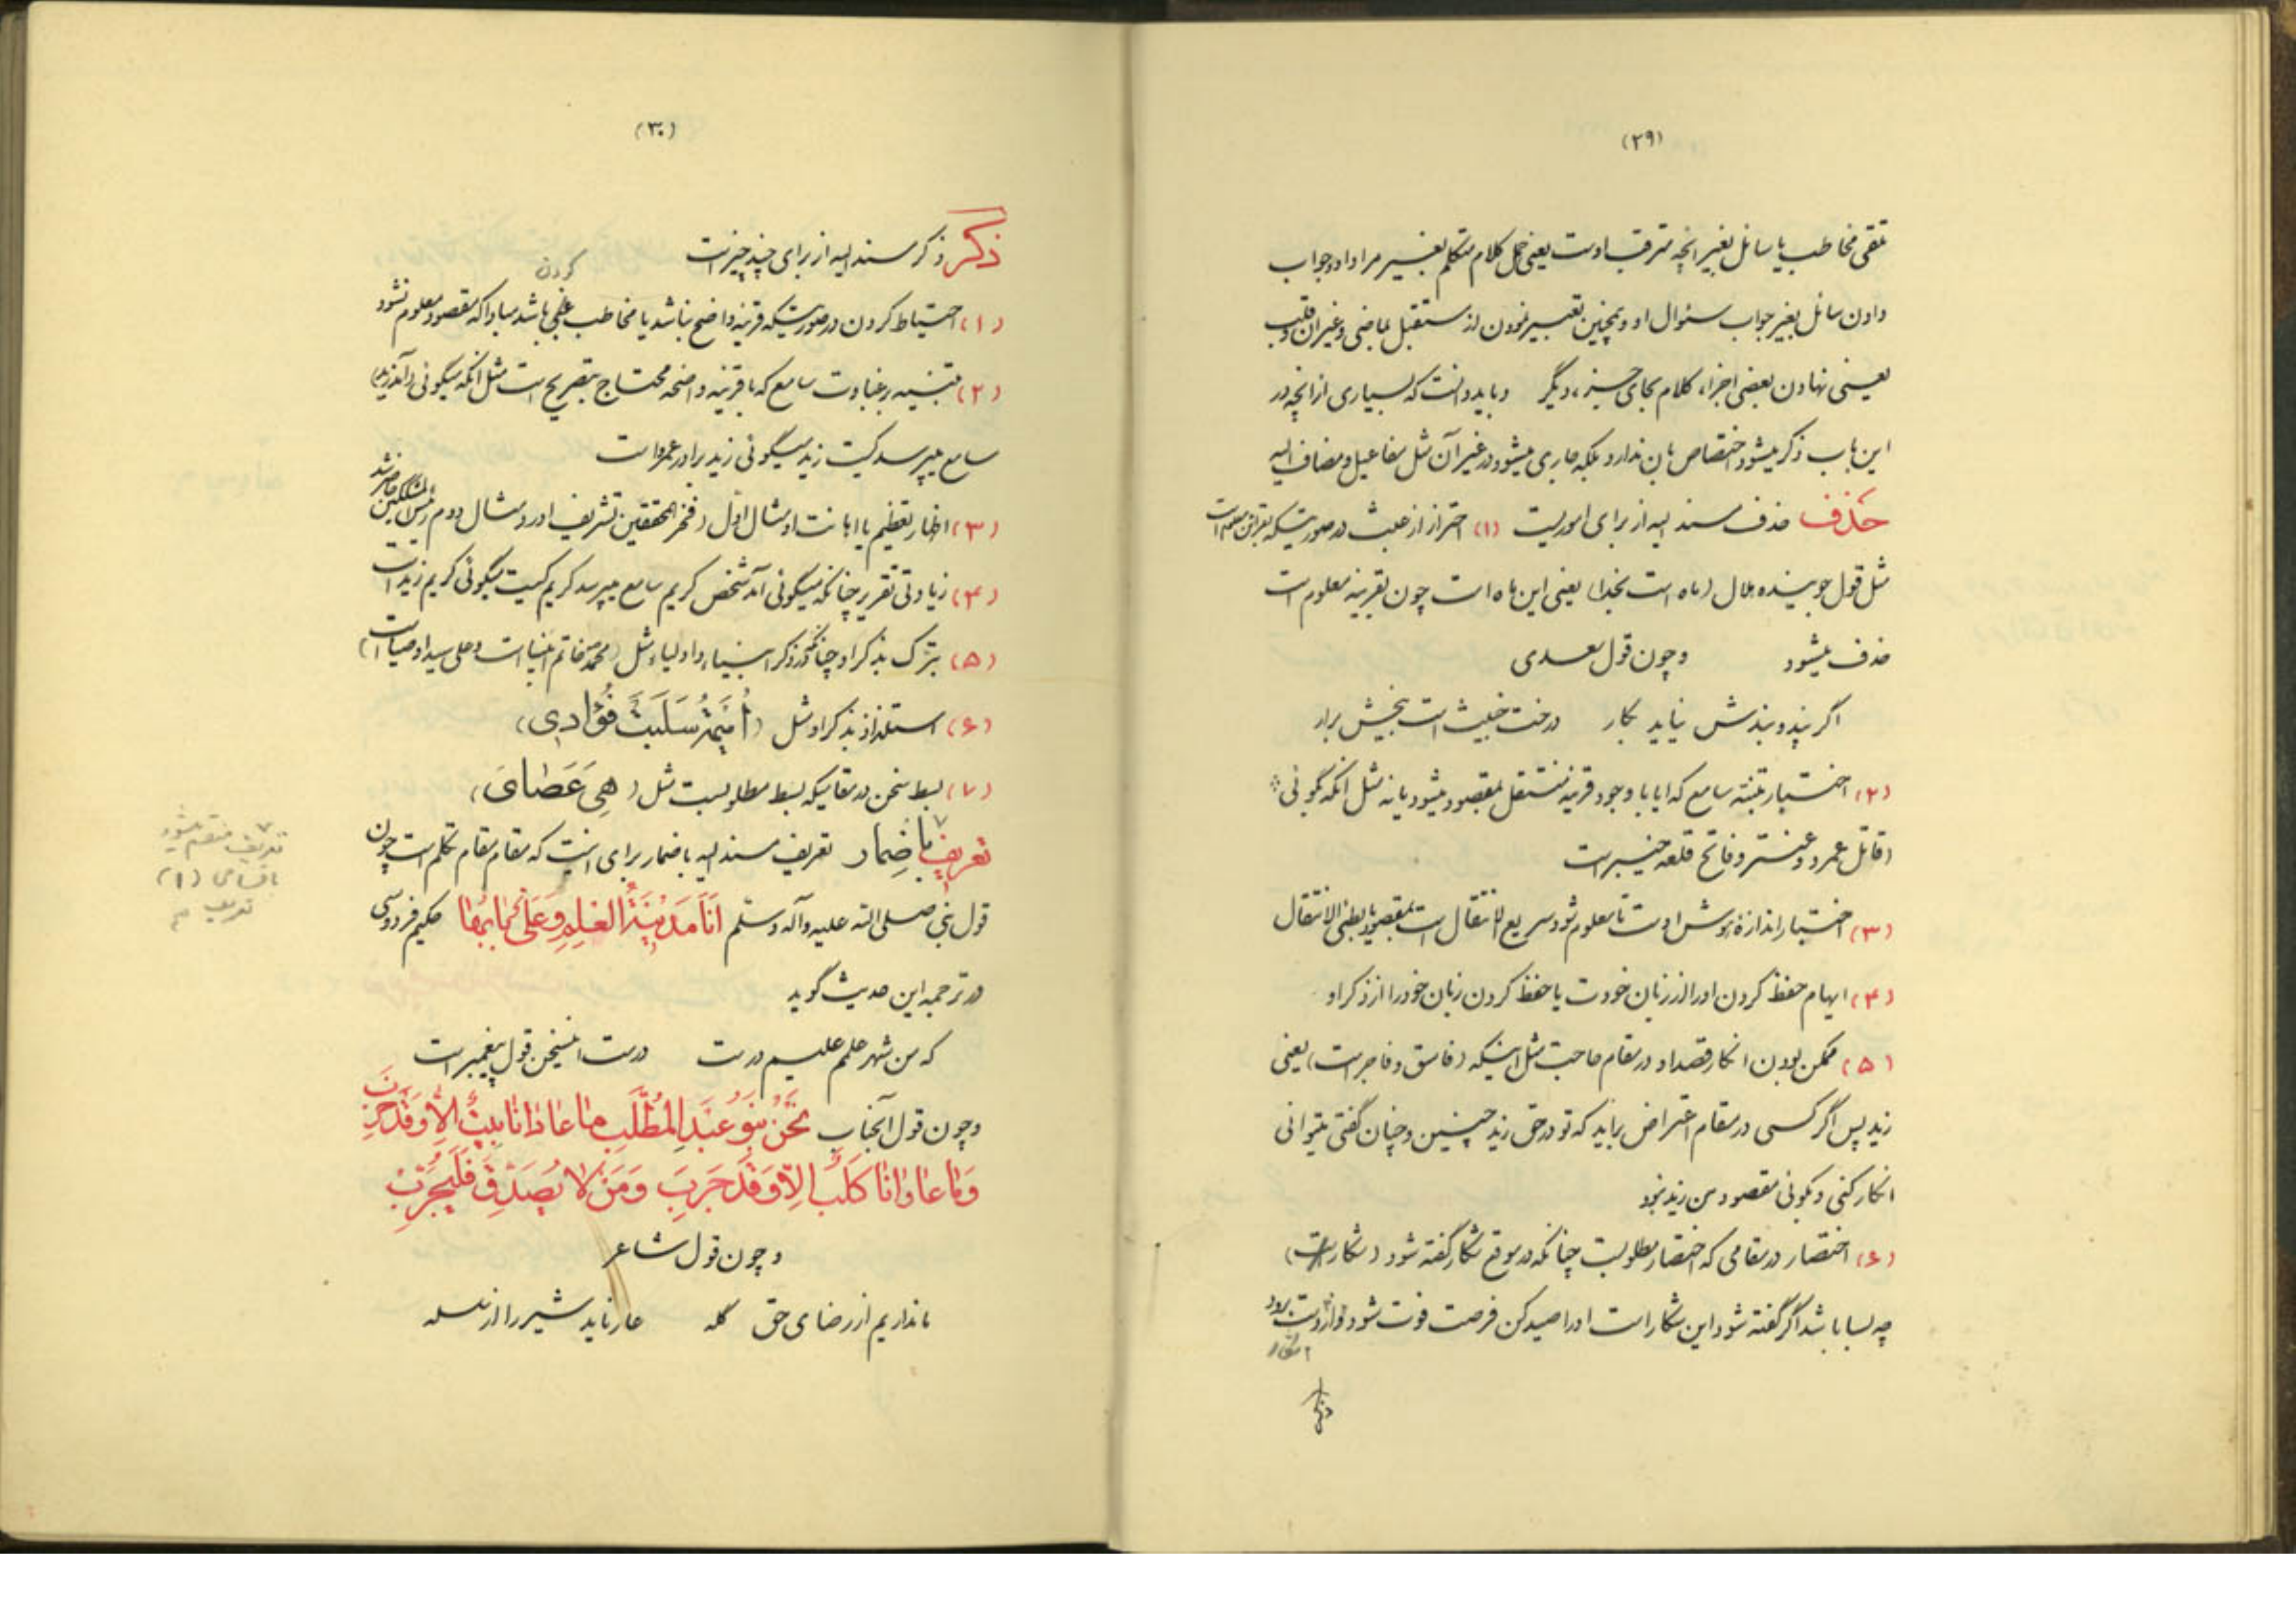 (۲۹)
تلقی مخاطب یا سائل بغیر آنچه مترقب اوست یعنی حمل کلام متکلم بغیر مراد او و جواب
دادن سائل بغیر جواب سئوال او و همچنین تعبیر نمودن از مستقبل بماضی و غیر آن و قلب
یعنی نهادن بعضی اجزاء کلام بجای جزء دیگر و باید دانست که بسیاری از آنچه در
این باب ذکر میشود اختصاص بآن ندارد بلکه جاری میشود در غیر آن مثل مفاعیل و مضاف الیه
حذف حذف مسند الیه از برای اموریست (۱) احتراز از عبث در صورتیکه بقرائن معلوم است
مثل قول جوینده هلال (ماه است بخدا) یعنی این ماه است چون بقرینه معلوم است
حذف میشود و چون قول سعدی
اگر پند و بندش نیاید بکار درخت خبیث است بیخش برار
(۲) اختبار تنبّه سامع که ایا با وجود قرینه منتقل بمقصود میشود یا نه مثل آنکه گوئی
(قاتل عمرو و عنتر و فاتح قلعه خیبر است
(۳) اختبار اندازه هوش اوست تا معلوم شود سریع الانتقال است بمقصود یا بطئ الانتقال
(۴) ایهام حفظ کردن او را از زبان خودت یا حفظ کردن زبان خود را از ذکر او
(۵) ممکن بودن انکار قصد او در مقام حاجت مثل اینکه (فاسق و فاجر است) یعنی
زید پس اگر کسی در مقام اعتراض براید که تو در حق زید چنین و چنان گفتی میتوانی
انکار کنی و بگوئی مقصود من زید نبود
(۶) اختصار در مقامی که اختصار مطلوبست چنانکه در موقع شکار گفته شود (شکار است)
چه بسا باشد اگر گفته شود این شکار است او را صید کن فرصت فوت شود و از دست برود
شکار
ذکر
(۳۰)
ذکر ذکر مسند الیه از برای چند چیز است
کردن
(۱) احتیاط کردن در صورتیکه قرینه واضح نباشد یا مخاطب غبی باشد مبادا که مقصود معلوم نشود
(۲) تنبیه بر غباوت سامع که با قرینه واضحه محتاج بتصریح است مثل آنکه میگوئی (آمد زید)
سامع میپرسد کیست زید میگوئی زید برادر عمرو است
(۳) اظهار تعظیم یا اهانت او مثال اول (فخر المحققین تشریف آورد مثال دوم رئیس المشککین حاضر شد
(۴) زیادتی تقریر چنانکه میگوئی آمد شخص کریم سامع میپرسد کریم کیست میگوئی کریم زید است
(۵) تبرّک بذکر او چنانکه در ذکر انبیاء و اولیاء مثل (محمد ص خاتم انبیا است و علی سید اوصیا است)
(۶) استلذاذ بذکر او مثل (أُمَیمَةُ سَلَبَتْ فُؤادی)
(۷) بسط سخن در مقامیکه بسط مطلوبست مثل (هِیَ عَصٰایَ)
تعریف باضمار تعریف مسند الیه باضمار برای اینست که مقام مقام تکلم است چون
قول نبی صلی الله علیه و آله و سلم اَنَا مَدینَةُ العِلمِ وَ عَلیٌّ بابُها حکیم فردوسی
در ترجمه این حدیث گوید
که من شهر علمم علیم در ست درست این سخن قول پیغمبر است
و چون قول آنجناب نَحْنُ بَنُو عَبدِ المُطَّلَبِ ما عادانا بَیتٌ اِلاّ وَ قَد خَرِبَ
وَ ما عاوانا کَلبٌ اِلاّ وَ قَد جَرِبَ وَ مَنْ لا یُصَدِّقْ فَلْیُجَرِّبْ
و چون قول شاعر
ما نداریم از رضای حق گله عار ناید شیر را از سلسله
تعریف منقسم میشود
باقسامی (۱)
تعریف